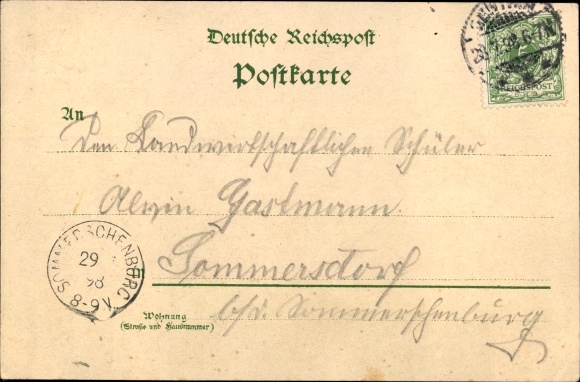 Deutsche Reichspost
Postkarte
REICHSPOST
An
Den Landwirtschaftlichen Schüler
Alvin Gastmann.
Sommersdorf
b/d. Sommerschenburg
SOMMERSCHENBURG
29
98
8-9V.
Wohnung
(Straße und Hausnummer)